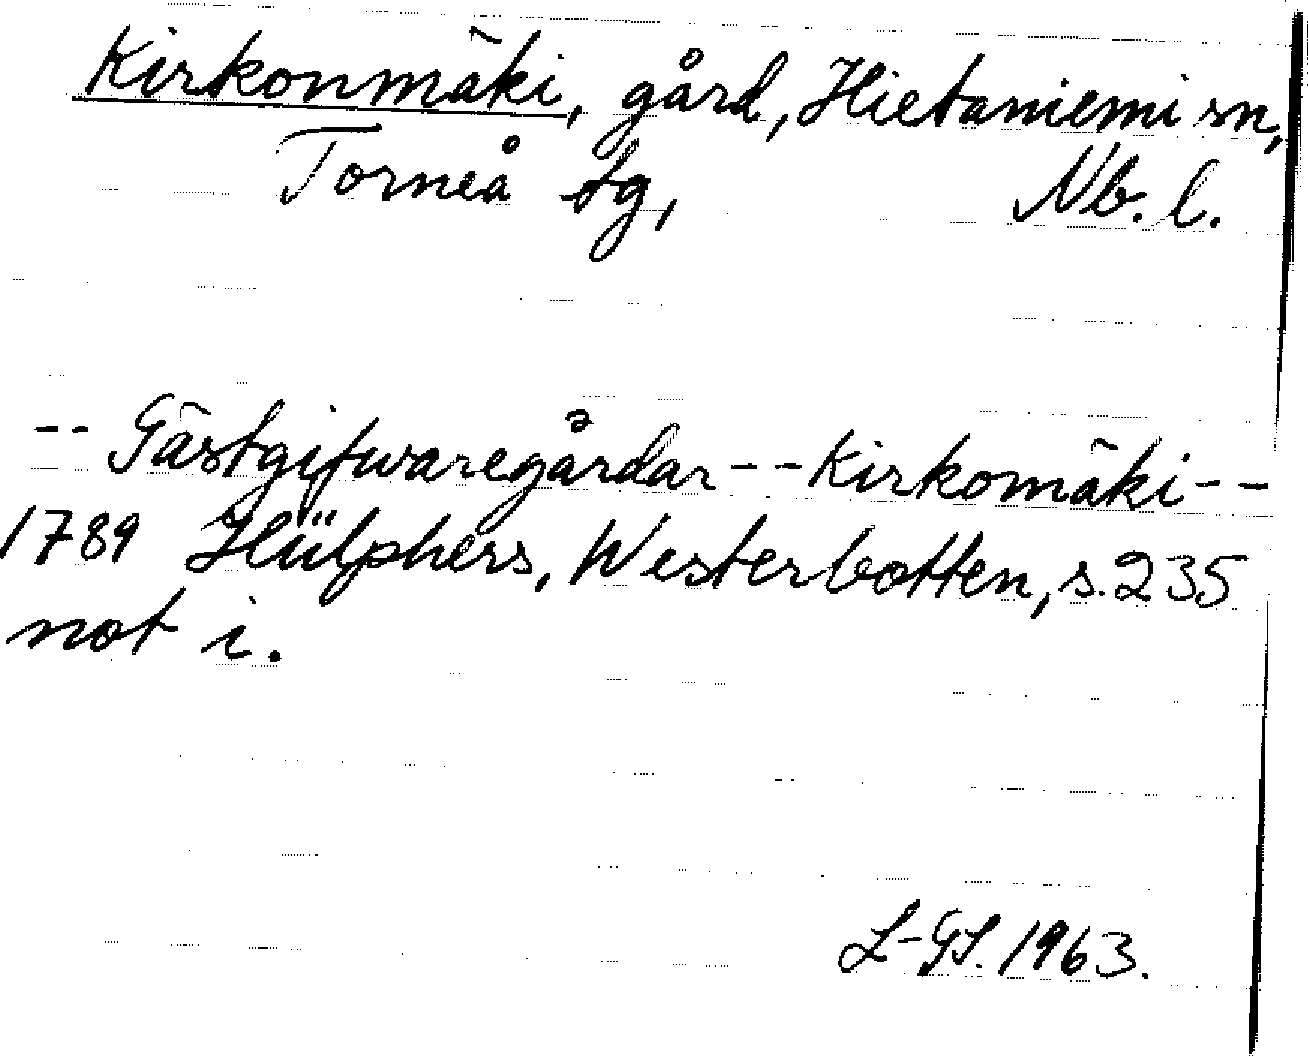 Kirkonmäki, gård, Hietaniemi sn,
Torneå tg, Nb. l.
-- Gästgifwaregårdar -- Kirkomäki --
1789 Hülphers, Westerbotten, s. 235
not i.
L-GS. 1963.